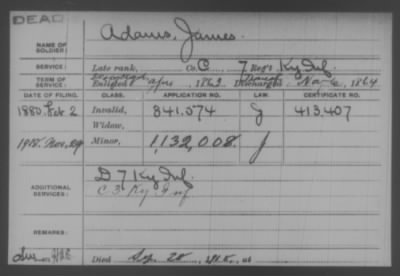 DEAD
NAME OF SOLDIER: Adams, James.
SERVICE: Late rank, Co. C, 7 Reg't Ky Inf.
TERM OF SERVICE: Enlisted 1863 Discharged Nov 1864
DATE OF FILING. CLASS. APPLICATION NO. LAW. CERTIFICATE NO.
1880. Feb 2 Invalid, 341,074 g 413,407
Widow,
1918. Nov. 29 Minor, 1,132,008. J
ADDITIONAL SERVICES: D 7 Ky Inf.
C 3 Ky Inf
REMARKS:
Died Sep. 28, at